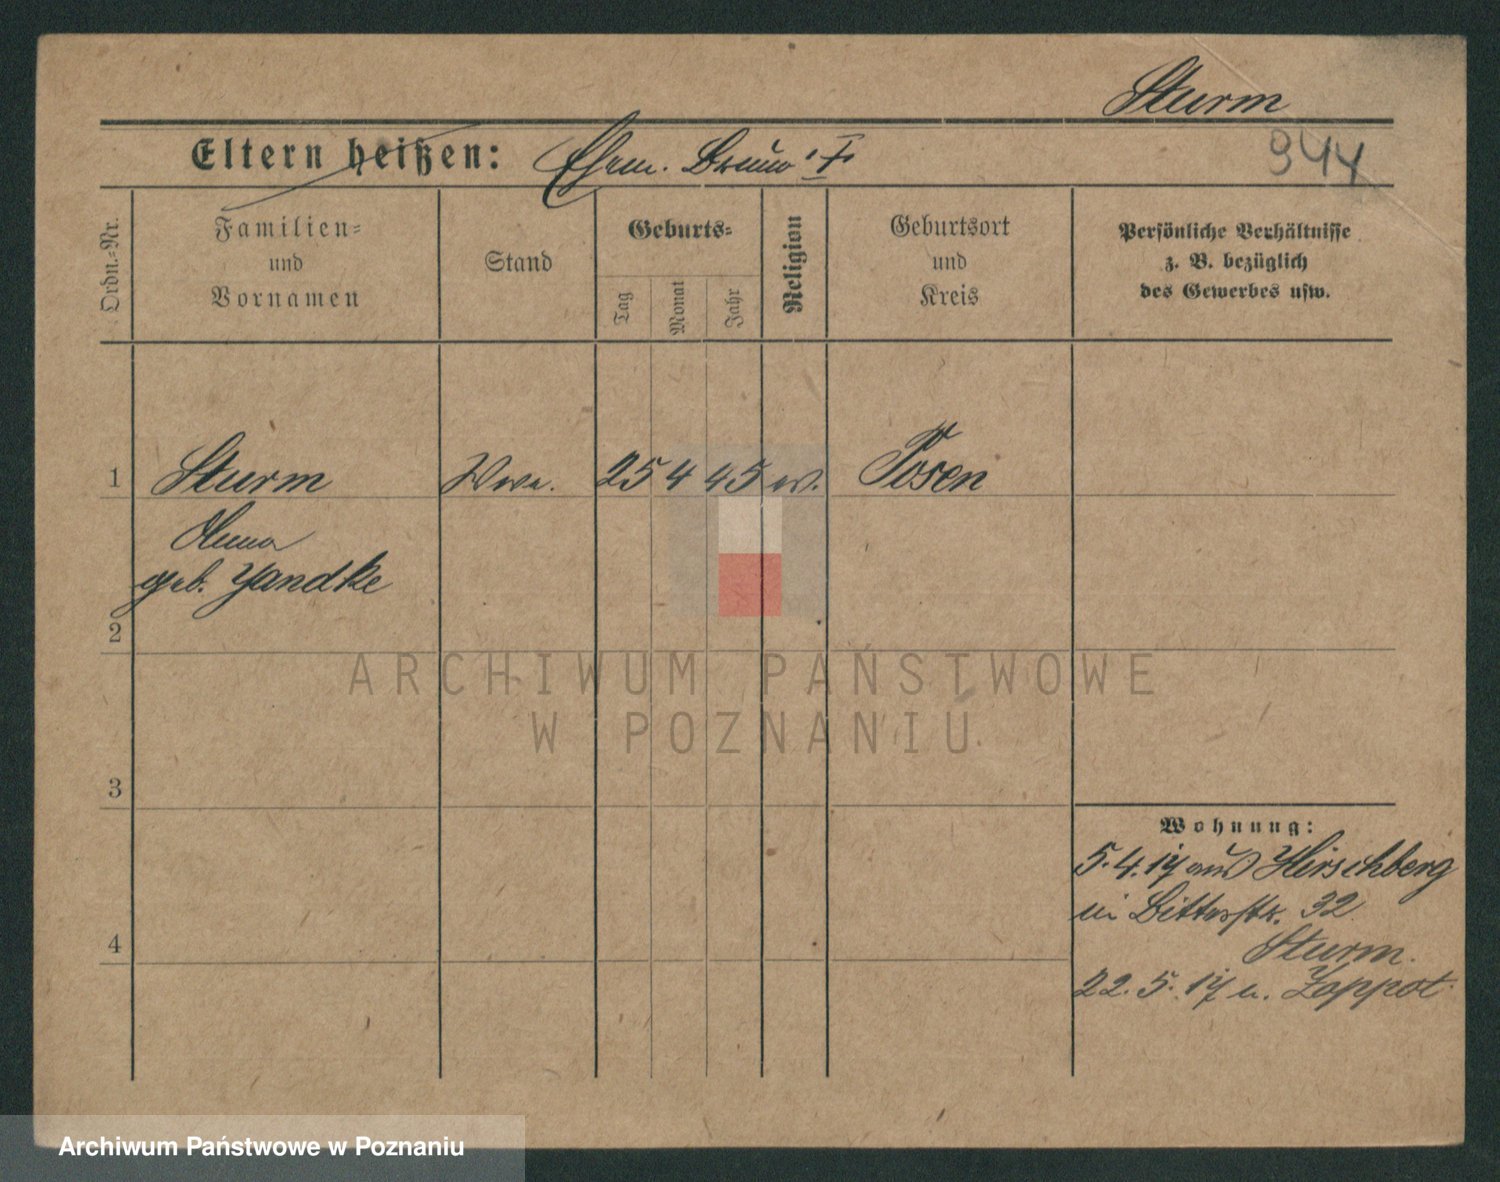 Sturm
944
Eltern heißen: Ehem. Bruno †
Ordn.-Nr.
Familien=
und
Vornamen
Stand
Geburts=
Tag
Monat
Jahr
Religion
Geburtsort
und
Kreis
Persönliche Verhältnisse
z. B. bezüglich
des Gewerbes usw.
1 Sturm Wwe. 25 4 45 ev. Posen
Anna
geb. Yandke
2
3
4
Wohnung:
5.4.17 aus Hirschberg
in Ritterstr. 32
Sturm.
22.5.17 n. Zoppot.
ARCHIWUM PAŃSTWOWE
W POZNANIU
Archiwum Państwowe w Poznaniu